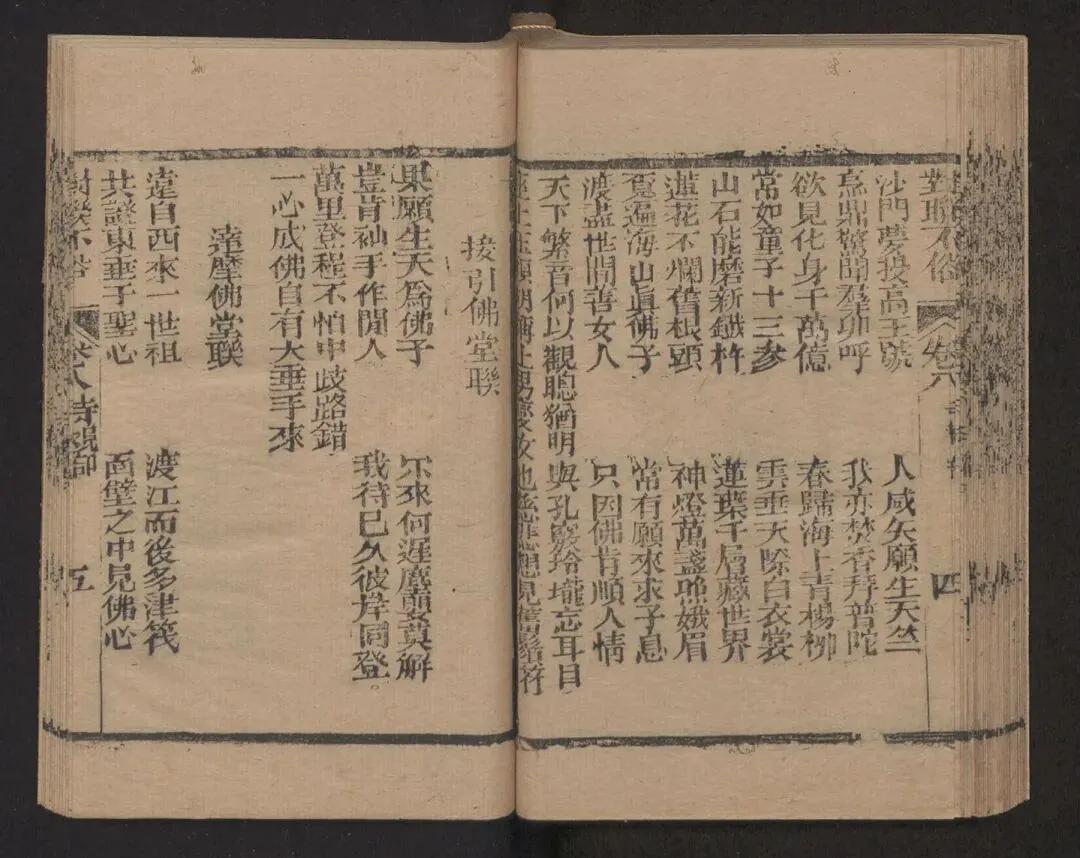 對聯不俗 卷六 四
沙門夢授高王 人咸矢願生天竺
烹鼎驚聞羣卯呼 我亦焚香拜普陀
欲見化身千萬億 春歸海上青楊柳
常如童子十三參 雲垂天際白衣裳
山石能磨新鐵杵 蓮葉千層藏世界
蓮花不爛舊根頭 神燈萬盞耶娥眉
覔遍海山眞佛子 常有願來求子息
渡盡世間善女人 只因佛肯順人情
天下繁音何以觀聰猶明 與孔竅玲瓏忘耳目
男變女也
接引佛堂联
果願生天爲佛子 尔來何遲塵刼莫解
豈肯袖手作閒人 我待已久彼岸同登
萬里登程不怕中歧路錯
一心成佛自有大垂手來
達摩佛堂联
遠自西來一世祖 渡江而後多津筏
共證東垂子聖心 面壁之中見佛心
對联不俗 卷六 寺觀節 五